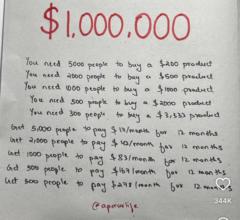 $1,000,000
You need 5000 people to buy a $200 product
You need 2000 people to buy a $500 product
You need 1000 people to buy a $1000 product
You need 500 people to buy a $2000 product
You need 300 people to buy a $3,333 product
Get 5,000 people to pay $17/month for 12 months
Get 2,000 people to pay $42/month for 12 months
Get 1000 people to pay $83/month for 12 months
Get 500 people to pay $167/month for 12 months
Get 300 people to pay $278/month for 12 months
344K